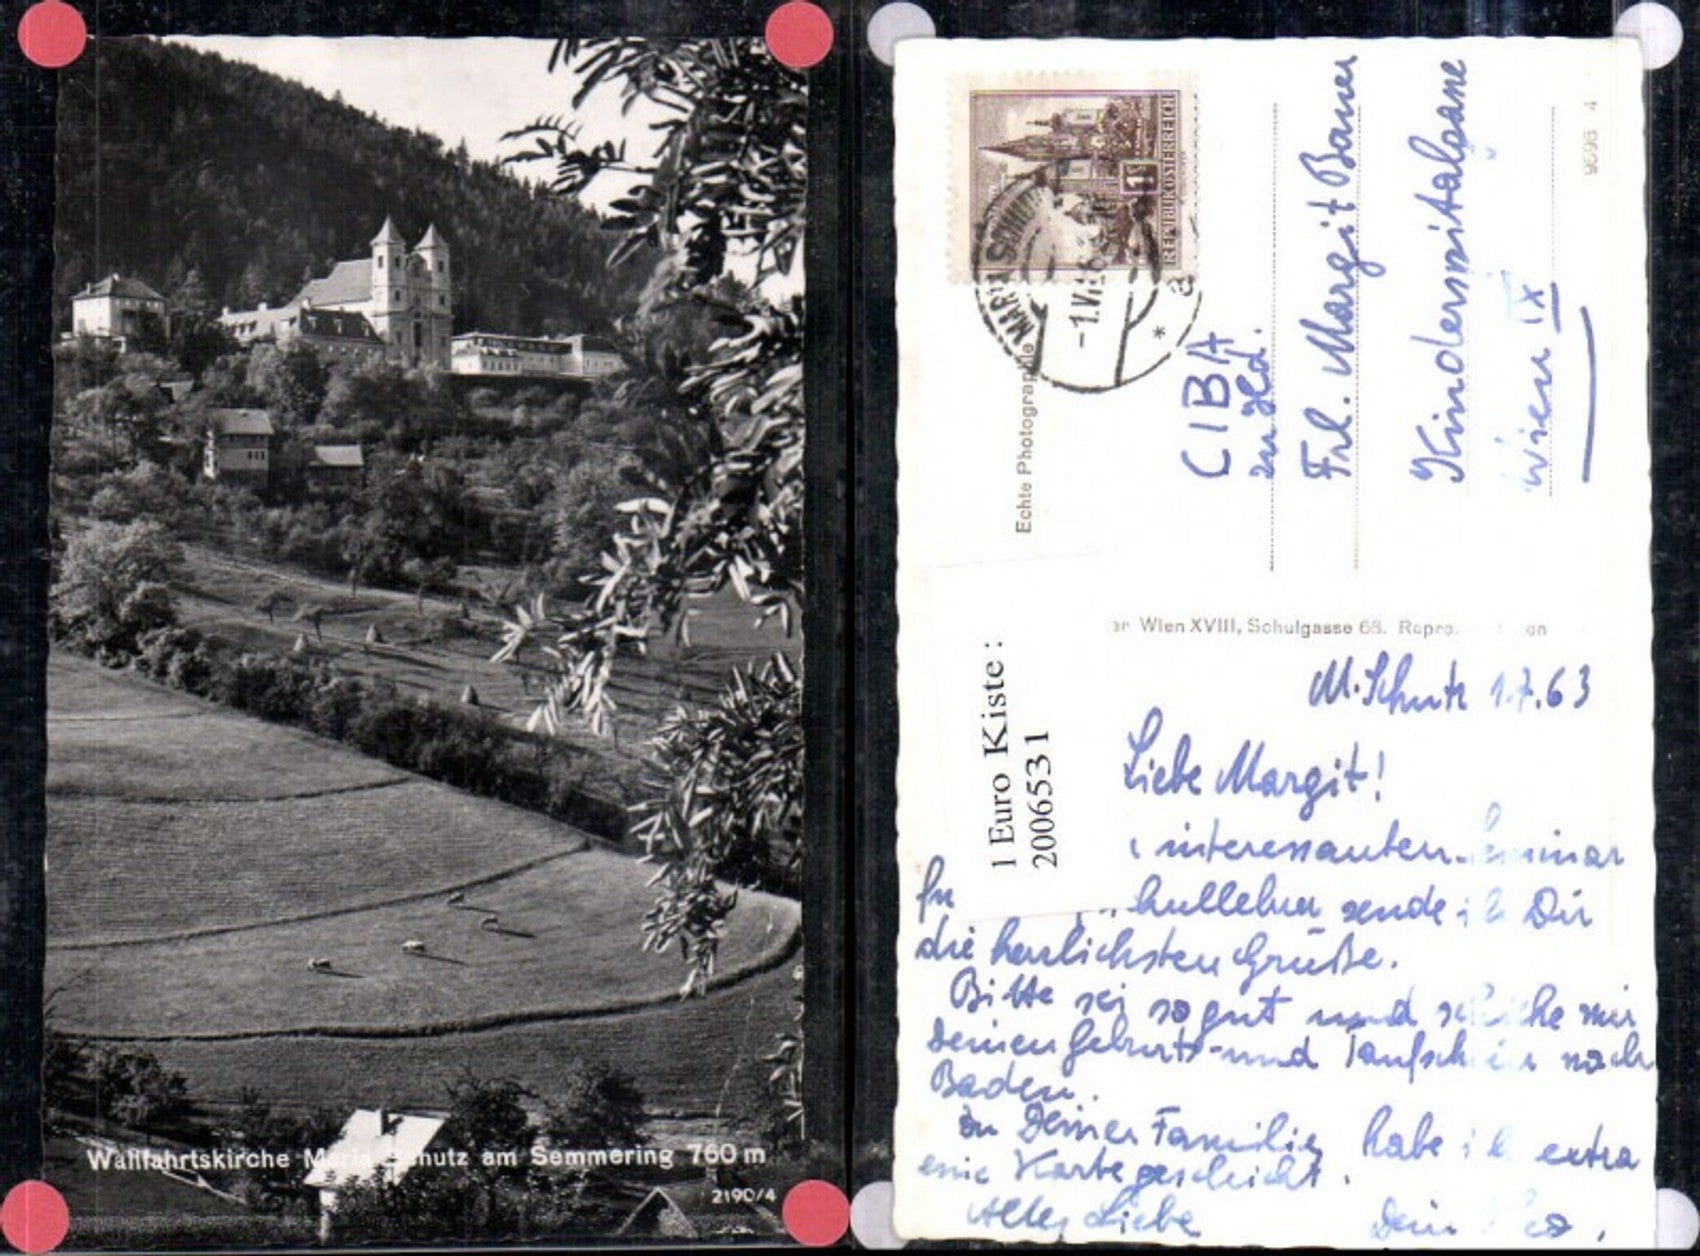 Wallfahrtskirche Maria Schutz am Semmering 760 m
2190/4
REPUBLIK ÖSTERREICH
1
MARIA SCHUTZ
-1.VII.
* a
Echte Photographie
9696 4
CIBA
zu Hd.
Frl. Margit Bauer
Kinderspitalgasse
Wien IX
Wien XVIII, Schulgasse 68.
1 Euro Kiste :
2006531
M. Schutz 1.7.63
Liebe Margit!
interessanten Seminar
die herzlichsten Grüße.
sende ich Dir
Bitte sei so gut und schicke mir
Deinen Geburts- und Taufschein nach
Baden.
An Deiner Familie habe ich extra
eine Karte geschickt.
Alles Liebe Dein